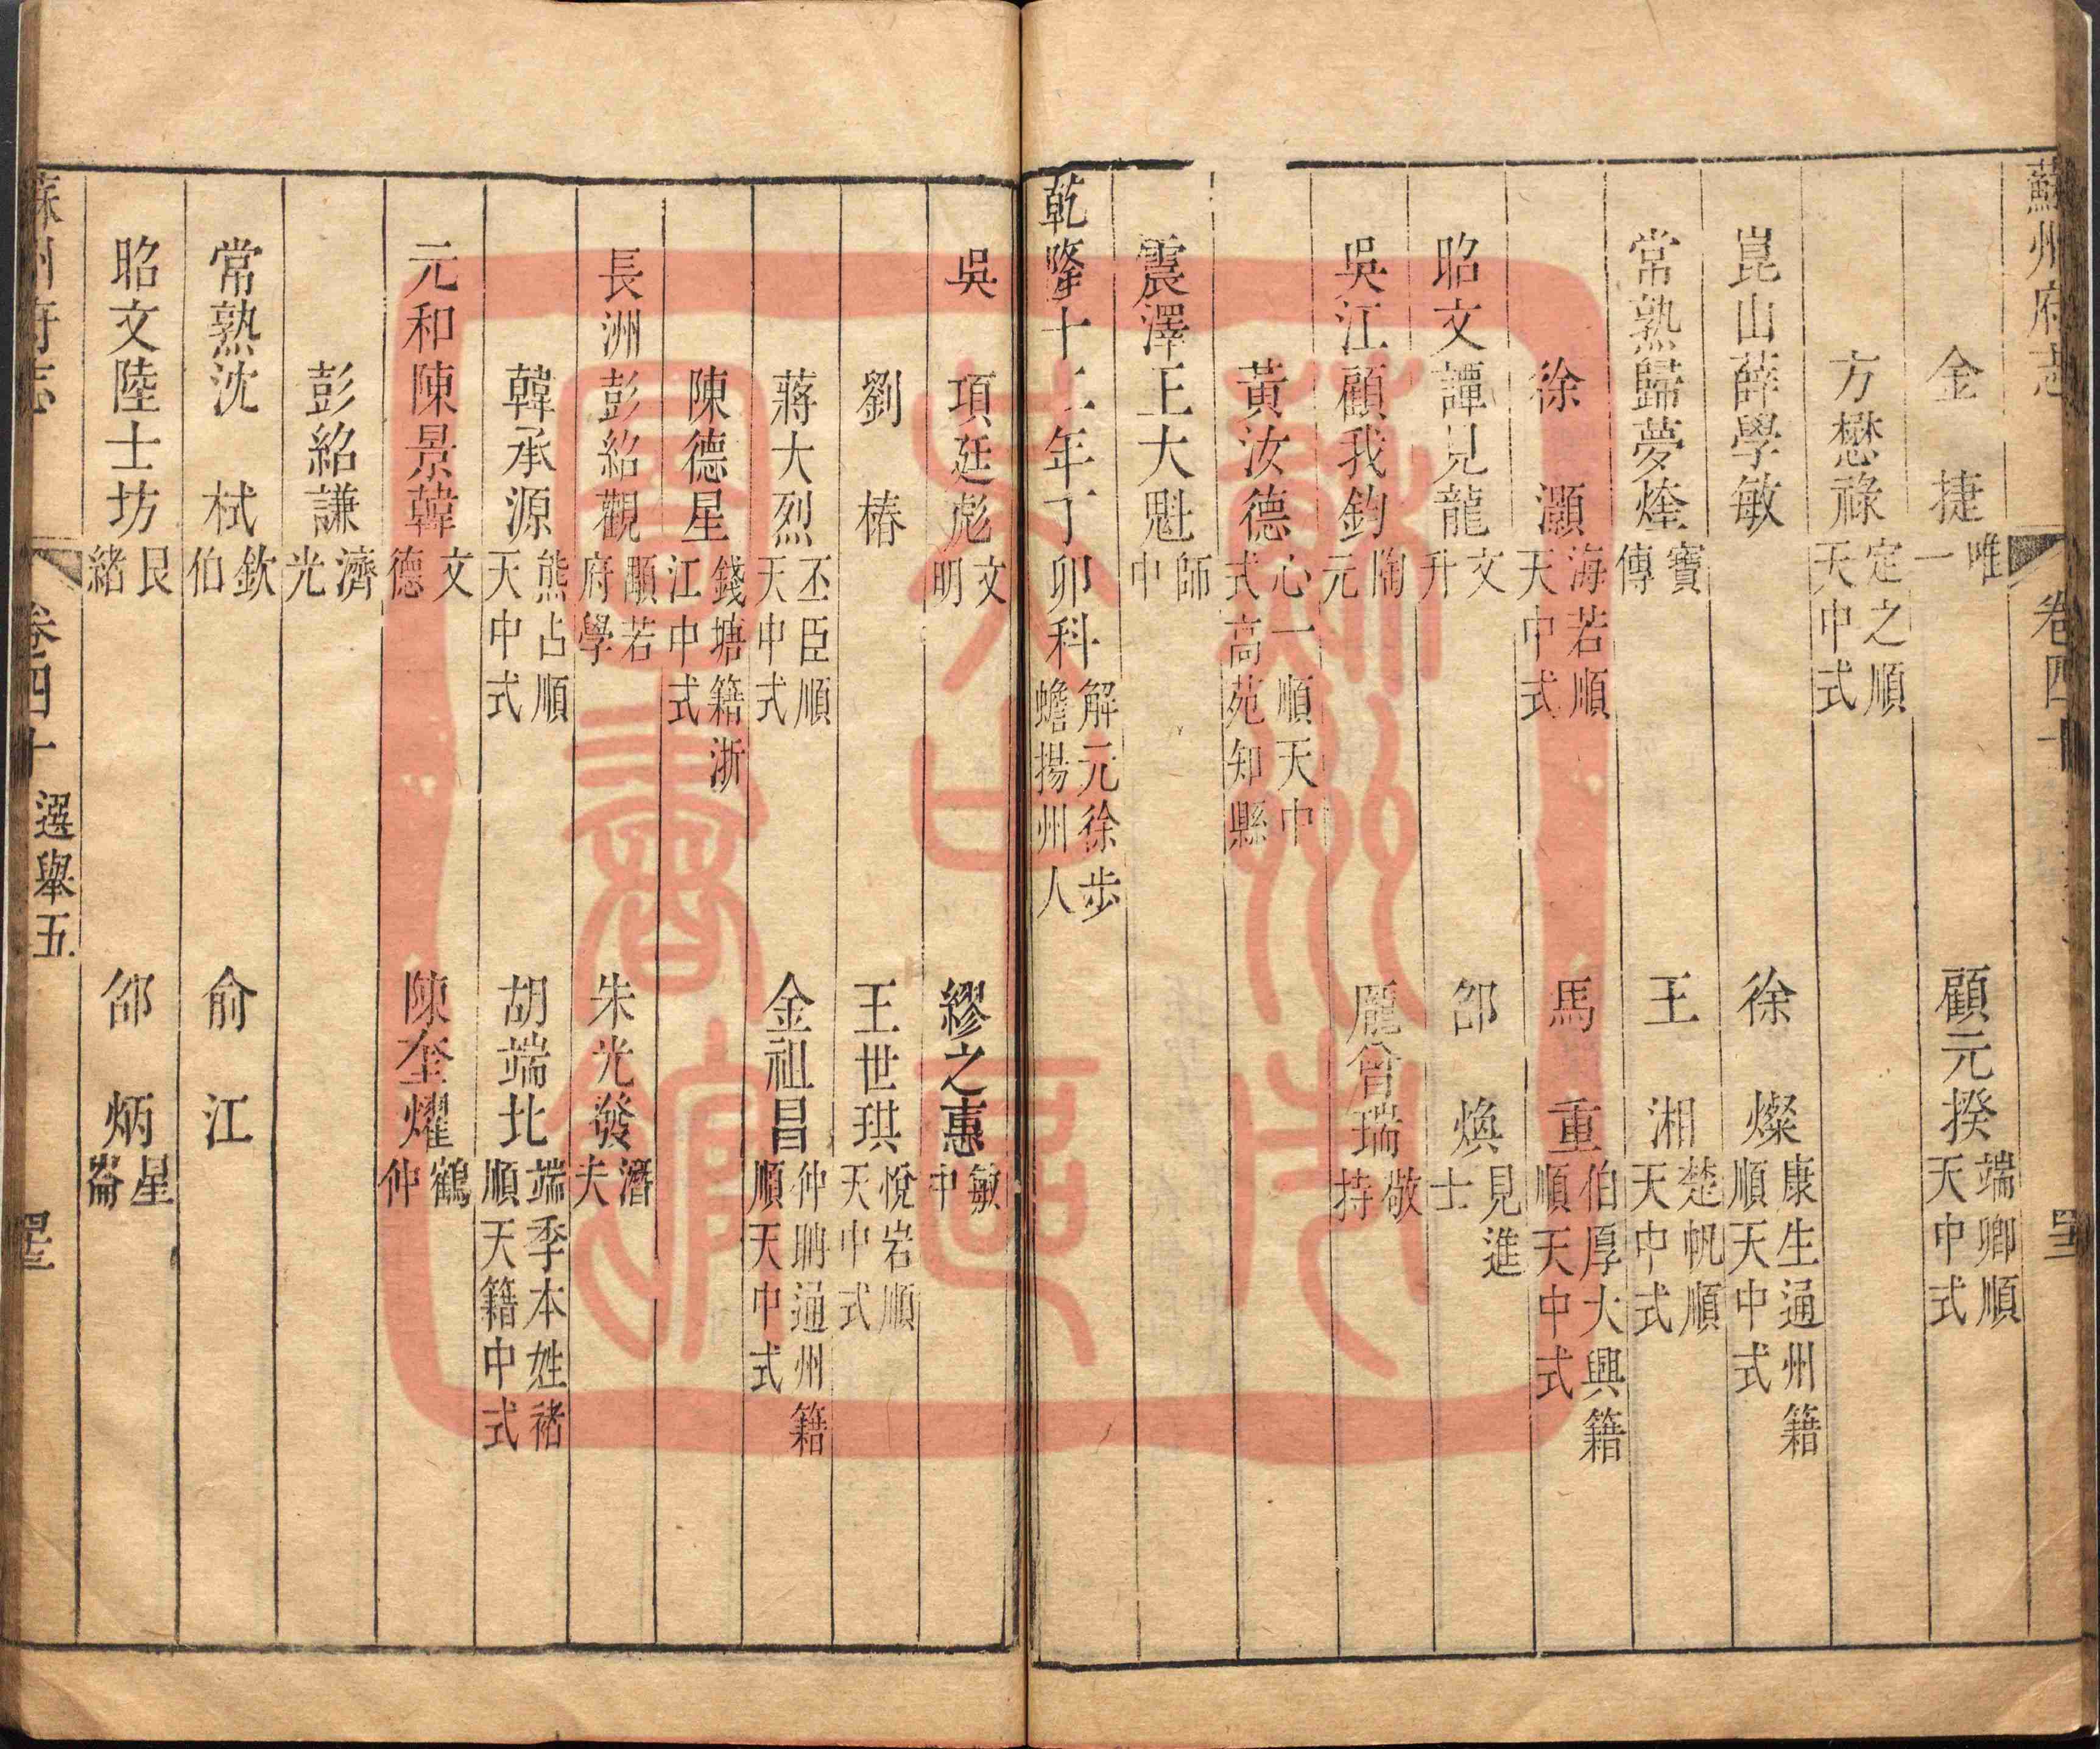 蘇州府志　卷四十　　四十三
金　捷唯一　顧元揆端卿順天中式
方懋祿定之順天中式
崑山薛學敏　徐　燦康生通州籍順天中式
常熟歸夢熦寶傳　王　湘楚帆順天中式
徐　灝海若順天中式　馬　重伯厚大興籍順天中式
昭文譚見龍文升　邵　煥見進士
吳江顧我鈞陶元　龐曾瑞敬持
黃汝德心一順天中式高苑知縣
震澤王大魁師中
乾隆十二年丁卯科解元徐步蟾揚州人
吳　項廷彪文明　繆之惠敏中
劉　椿　王世琪悅岩順天中式
蔣大烈丕臣順天中式　金祖昌仲聃通州籍順天中式
陳德星錢塘籍浙江中式
長洲彭紹觀顒若府學　朱光發濳夫
韓承源熊占順天中式　胡端北端季本姓褚順天籍中式
元和陳景韓文德　陳奎燿鶴仲
彭紹謙濟光
常熟沈　栻欽伯　俞　江
昭文陸士坊艮緒　邵　炳星崙
蘇州府志　卷四十　選舉五　四十三